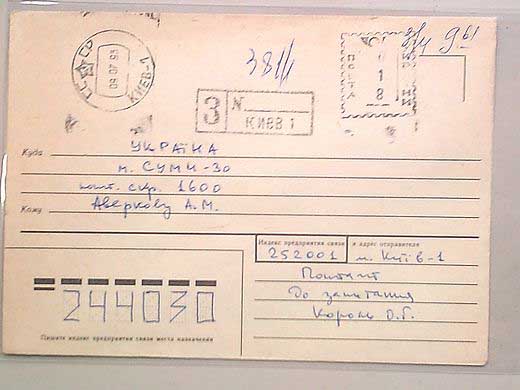 СССР
09.07.93
КИЕВ-1
3811
ПОЧТА
18
З N
КИЕВ 1
Куда УКРАЇНА
м. СУМИ-30
пошт. скр. 1600
Кому Аверкову А.М.
Индекс предприятия связи и адрес отправителя
252001 м. Київ-1
Поштамт
До запитання
Король О.Г.
244030
Пишите индекс предприятия связи места назначения